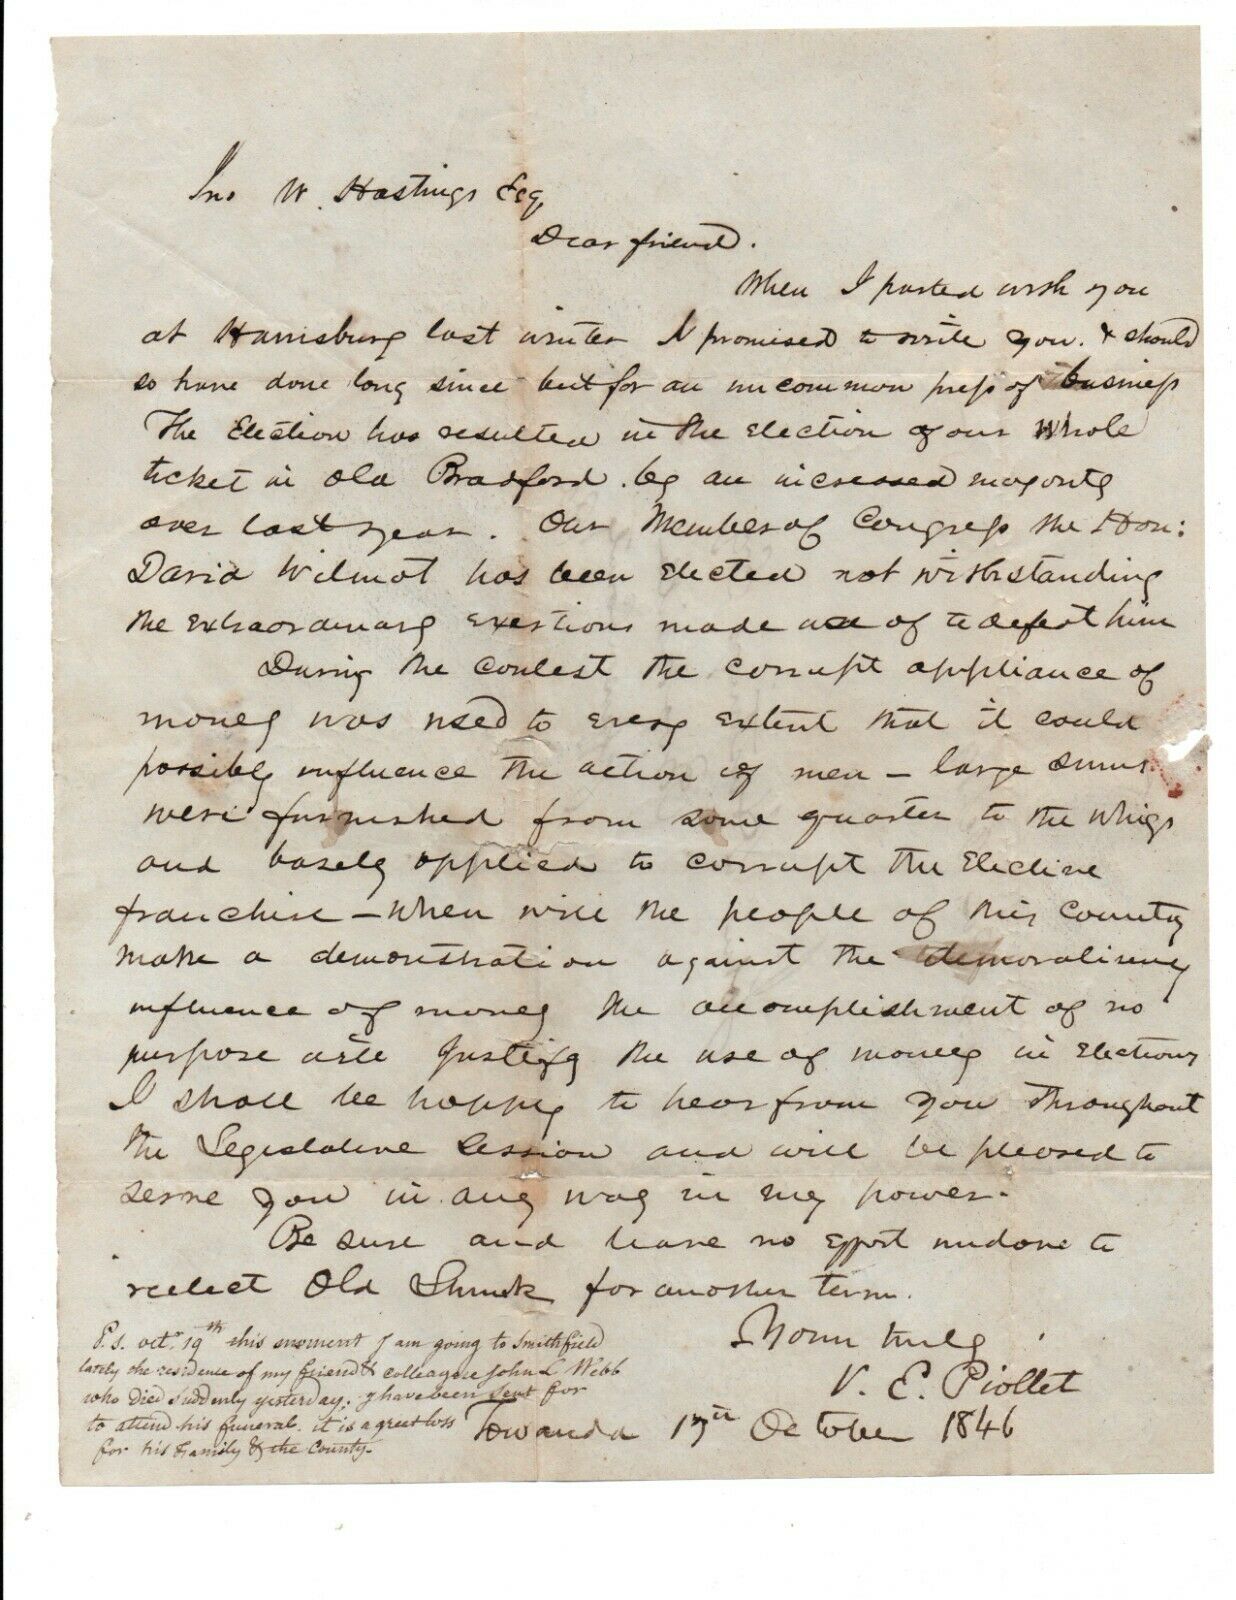 Jno W. Hastings Esq
Dear friend.
When I parted with you
at Harrisburg last winter I promised to write you. & should
so have done long since but for an uncommon press of business
The Election has resulted in the election of our whole
ticket in Old Bradford. by an increased majority
over last year. Our Member of Congress the Hon:
David Wilmot has been elected not withstanding
the extraordinary exertions made use of to defeat him
During the contest the corrupt appliance of
money was used to every extent that it could
possibly influence the action of men – large sums
were furnished from some quarter to the Whigs
and basely applied to corrupt the Elective
franchise – When will the people of this County
make a demonstration against the demoralising
influence of money the accomplishment of no
purpose will Justify the use of money in elections
I shall be happy to hear from you throughout
the Legislative Session and will be pleased to
serve you in any way in my power.
Be sure and leave no effort undone to
reelect Old Shunk for another term.
Yours truly
V. E. Piollet
Towanda 17th October 1846
P.S. Oct. 19th this moment I am going to Smithfield
lately the residence of my friend & colleague John L Webb
who Died suddenly yesterday. I have been sent for
to attend his funeral. it is a great loss
for his Family & the County.